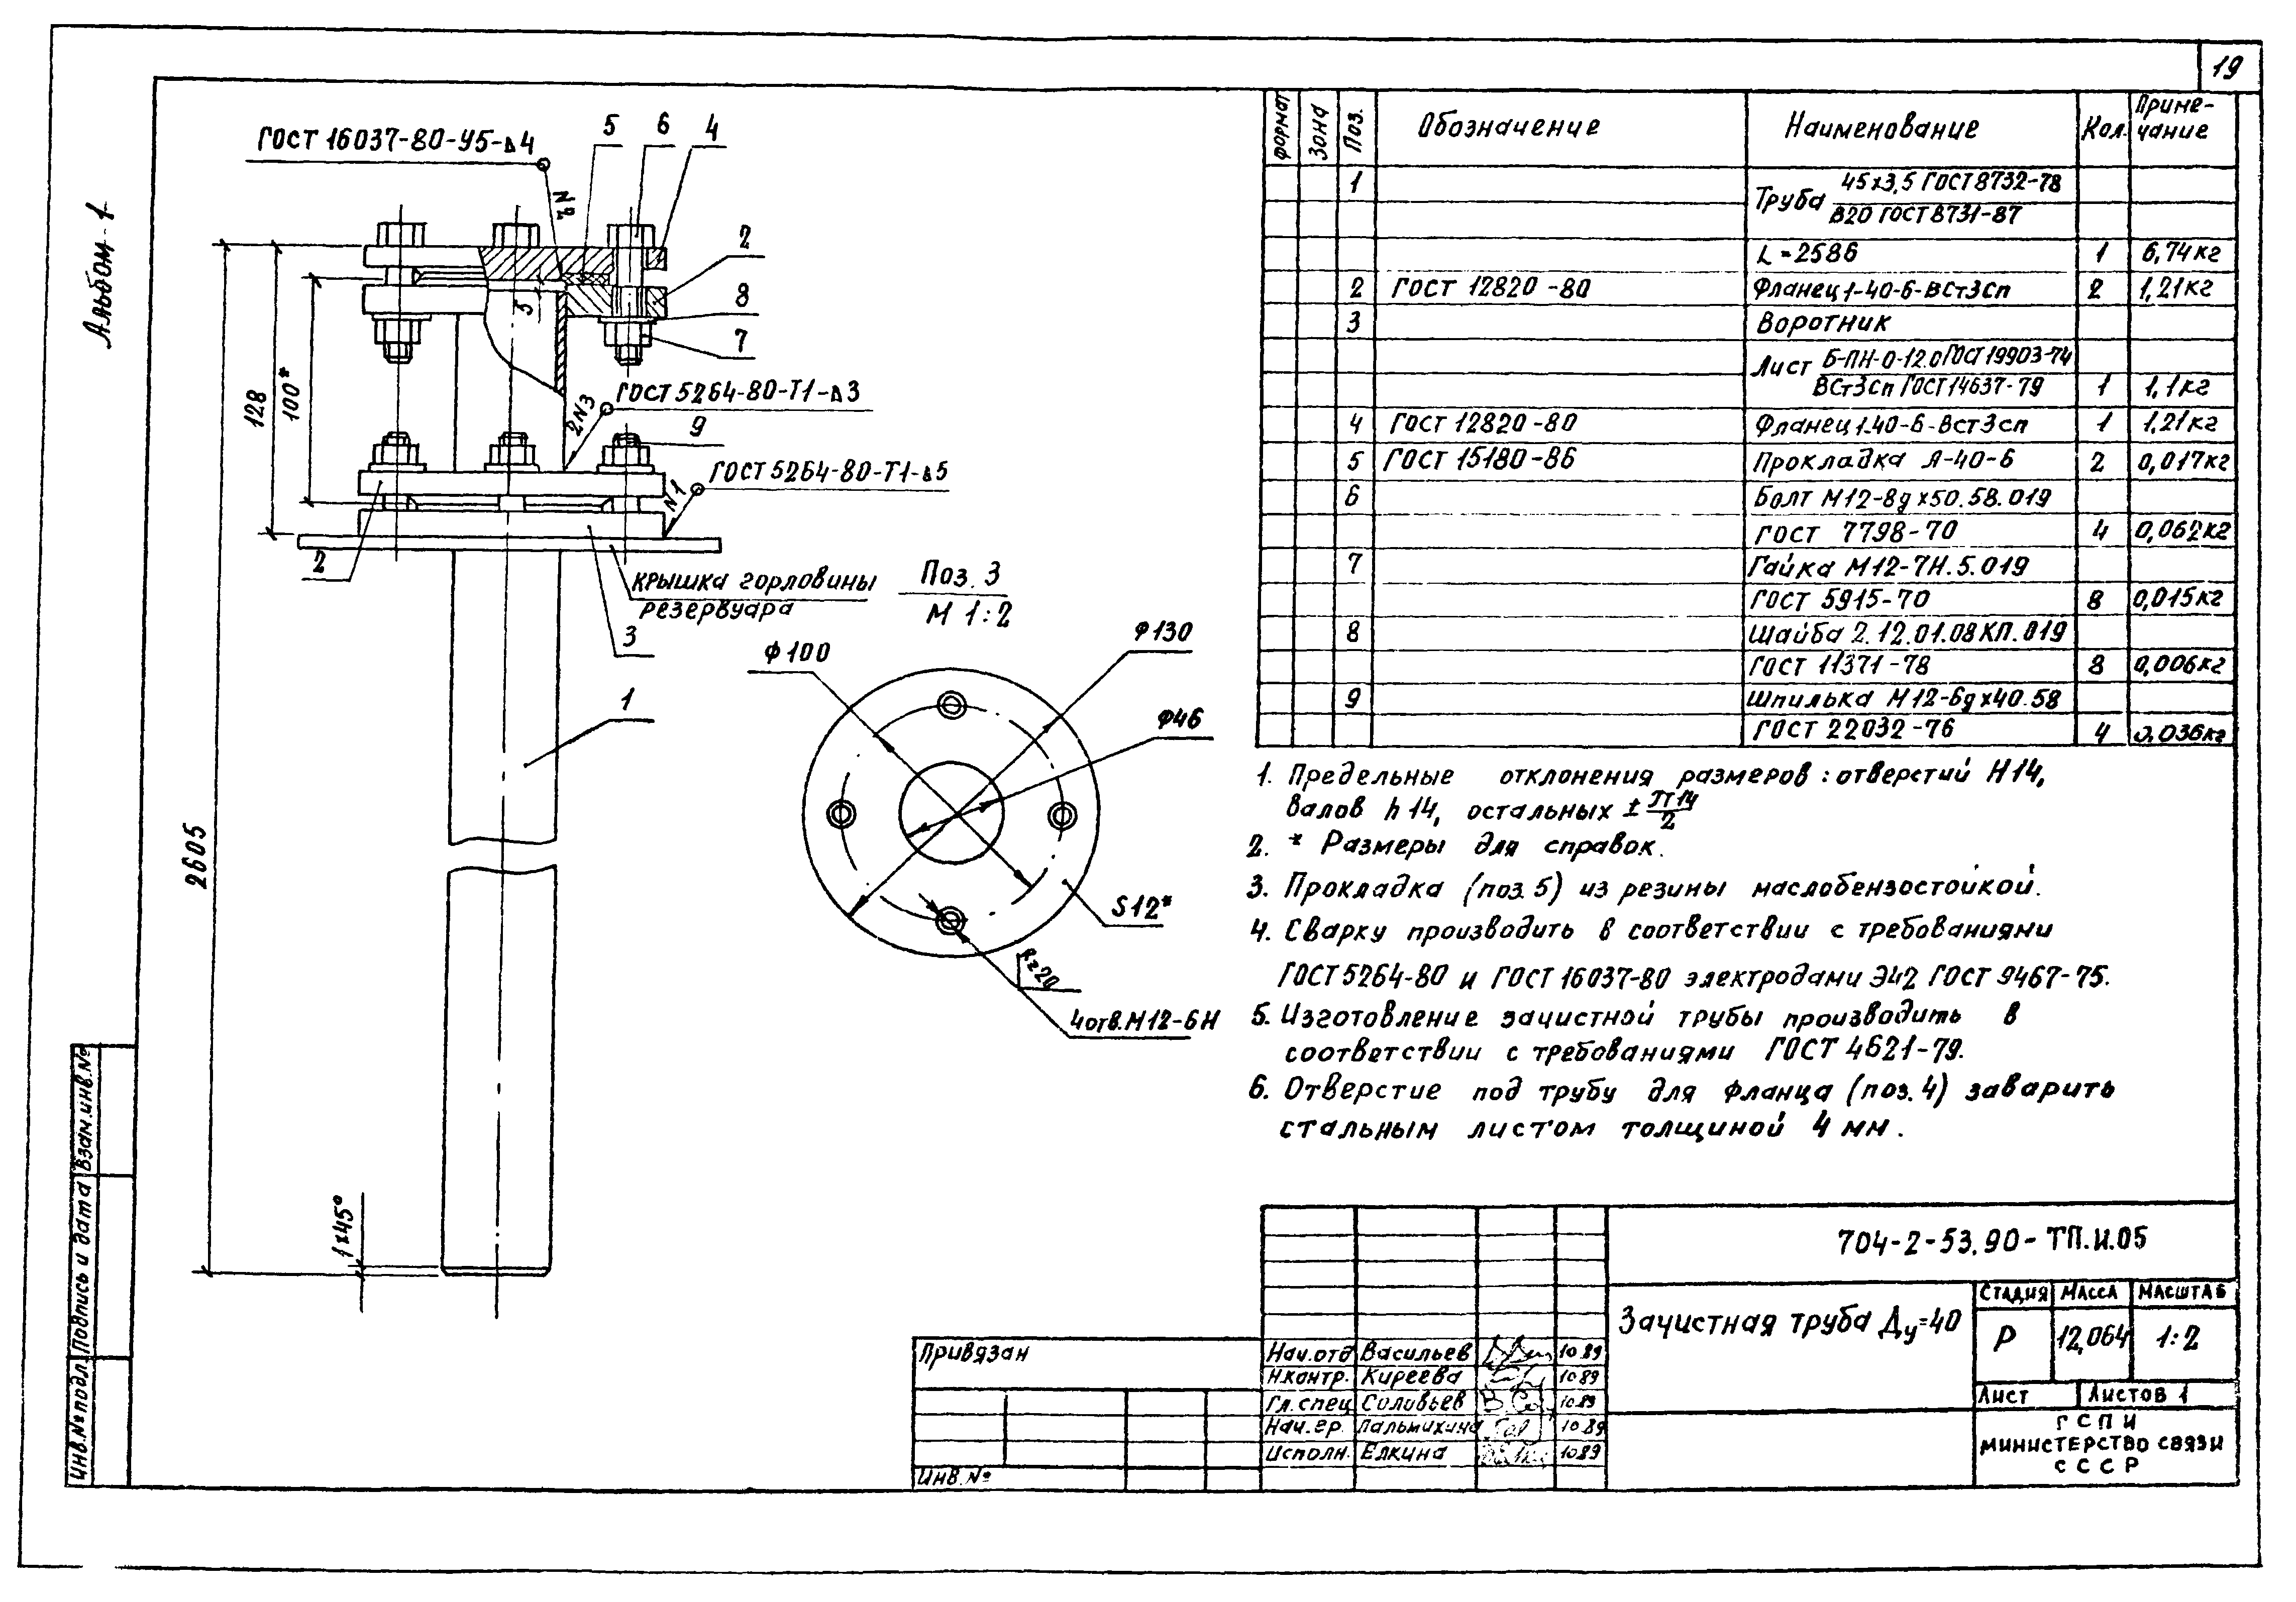 19
Альбом 1
ГОСТ 16037-80-У5-⊿4
5
6
4
№2
2
8
7
5
ГОСТ 5264-80-Т1-⊿3
2№3
9
ГОСТ 5264-80-Т1-⊿5
№1
128
100*
2
крышка горловины
резервуара
3
1
2605
1х45°
Поз. 3
М 1:2
ф100
ф130
ф46
S12*
Rz20
4отв.М12-6Н
Формат Зона Поз. Обозначение Наименование Кол. Приме-
чание
1 Труба 45х3,5 ГОСТ 8732-78
В20 ГОСТ 8731-87
L=2586 1 6,74кг
2 ГОСТ 12820-80 Фланец 1-40-6-ВСт3сп 2 1,21кг
3 Воротник
Лист Б-ПН-О-12.0 ГОСТ 19903-74
ВСт3сп ГОСТ 14637-79 1 1,1кг
4 ГОСТ 12820-80 Фланец 1-40-6-Вст3сп 1 1,21кг
5 ГОСТ 15180-86 Прокладка А-40-6 2 0,017кг
6 Болт М12-8gх50.58.019
ГОСТ 7798-70 4 0,062кг
7 Гайка М12-7Н.5.019
ГОСТ 5915-70 8 0,015кг
8 Шайба 2.12.01.08КП.019
ГОСТ 11371-78 8 0,006кг
9 Шпилька М12-6gх40.58
ГОСТ 22032-76 4 0,036кг
1. Предельные отклонения размеров: отверстий Н14,
валов h14, остальных ± IT14/2
2. * Размеры для справок.
3. Прокладка (поз. 5) из резины маслобензостойкой.
4. Сварку производить в соответствии с требованиями
ГОСТ 5264-80 и ГОСТ 16037-80 электродами Э42 ГОСТ 9467-75.
5. Изготовление зачистной трубы производить в
соответствии с требованиями ГОСТ 4621-79.
6. Отверстие под трубу для фланца (поз. 4) заварить
стальным листом толщиной 4 мм.
704-2-53.90-ТП.И.05
Зачистная труба Ду=40
Стадия Масса Масштаб
Р 12,064 1:2
Лист Листов 1
ГСПИ
Министерство связи
СССР
Нач.отд Васильев 10.89
Н.контр. Киреева 10.89
Гл.спец Соловьев 10.89
Нач.гр. Пальмихина 10.89
Исполн. Елкина 10.89
Привязан
Инв. №
Взам.инв.№
Подпись и дата
Инв.№ подл.